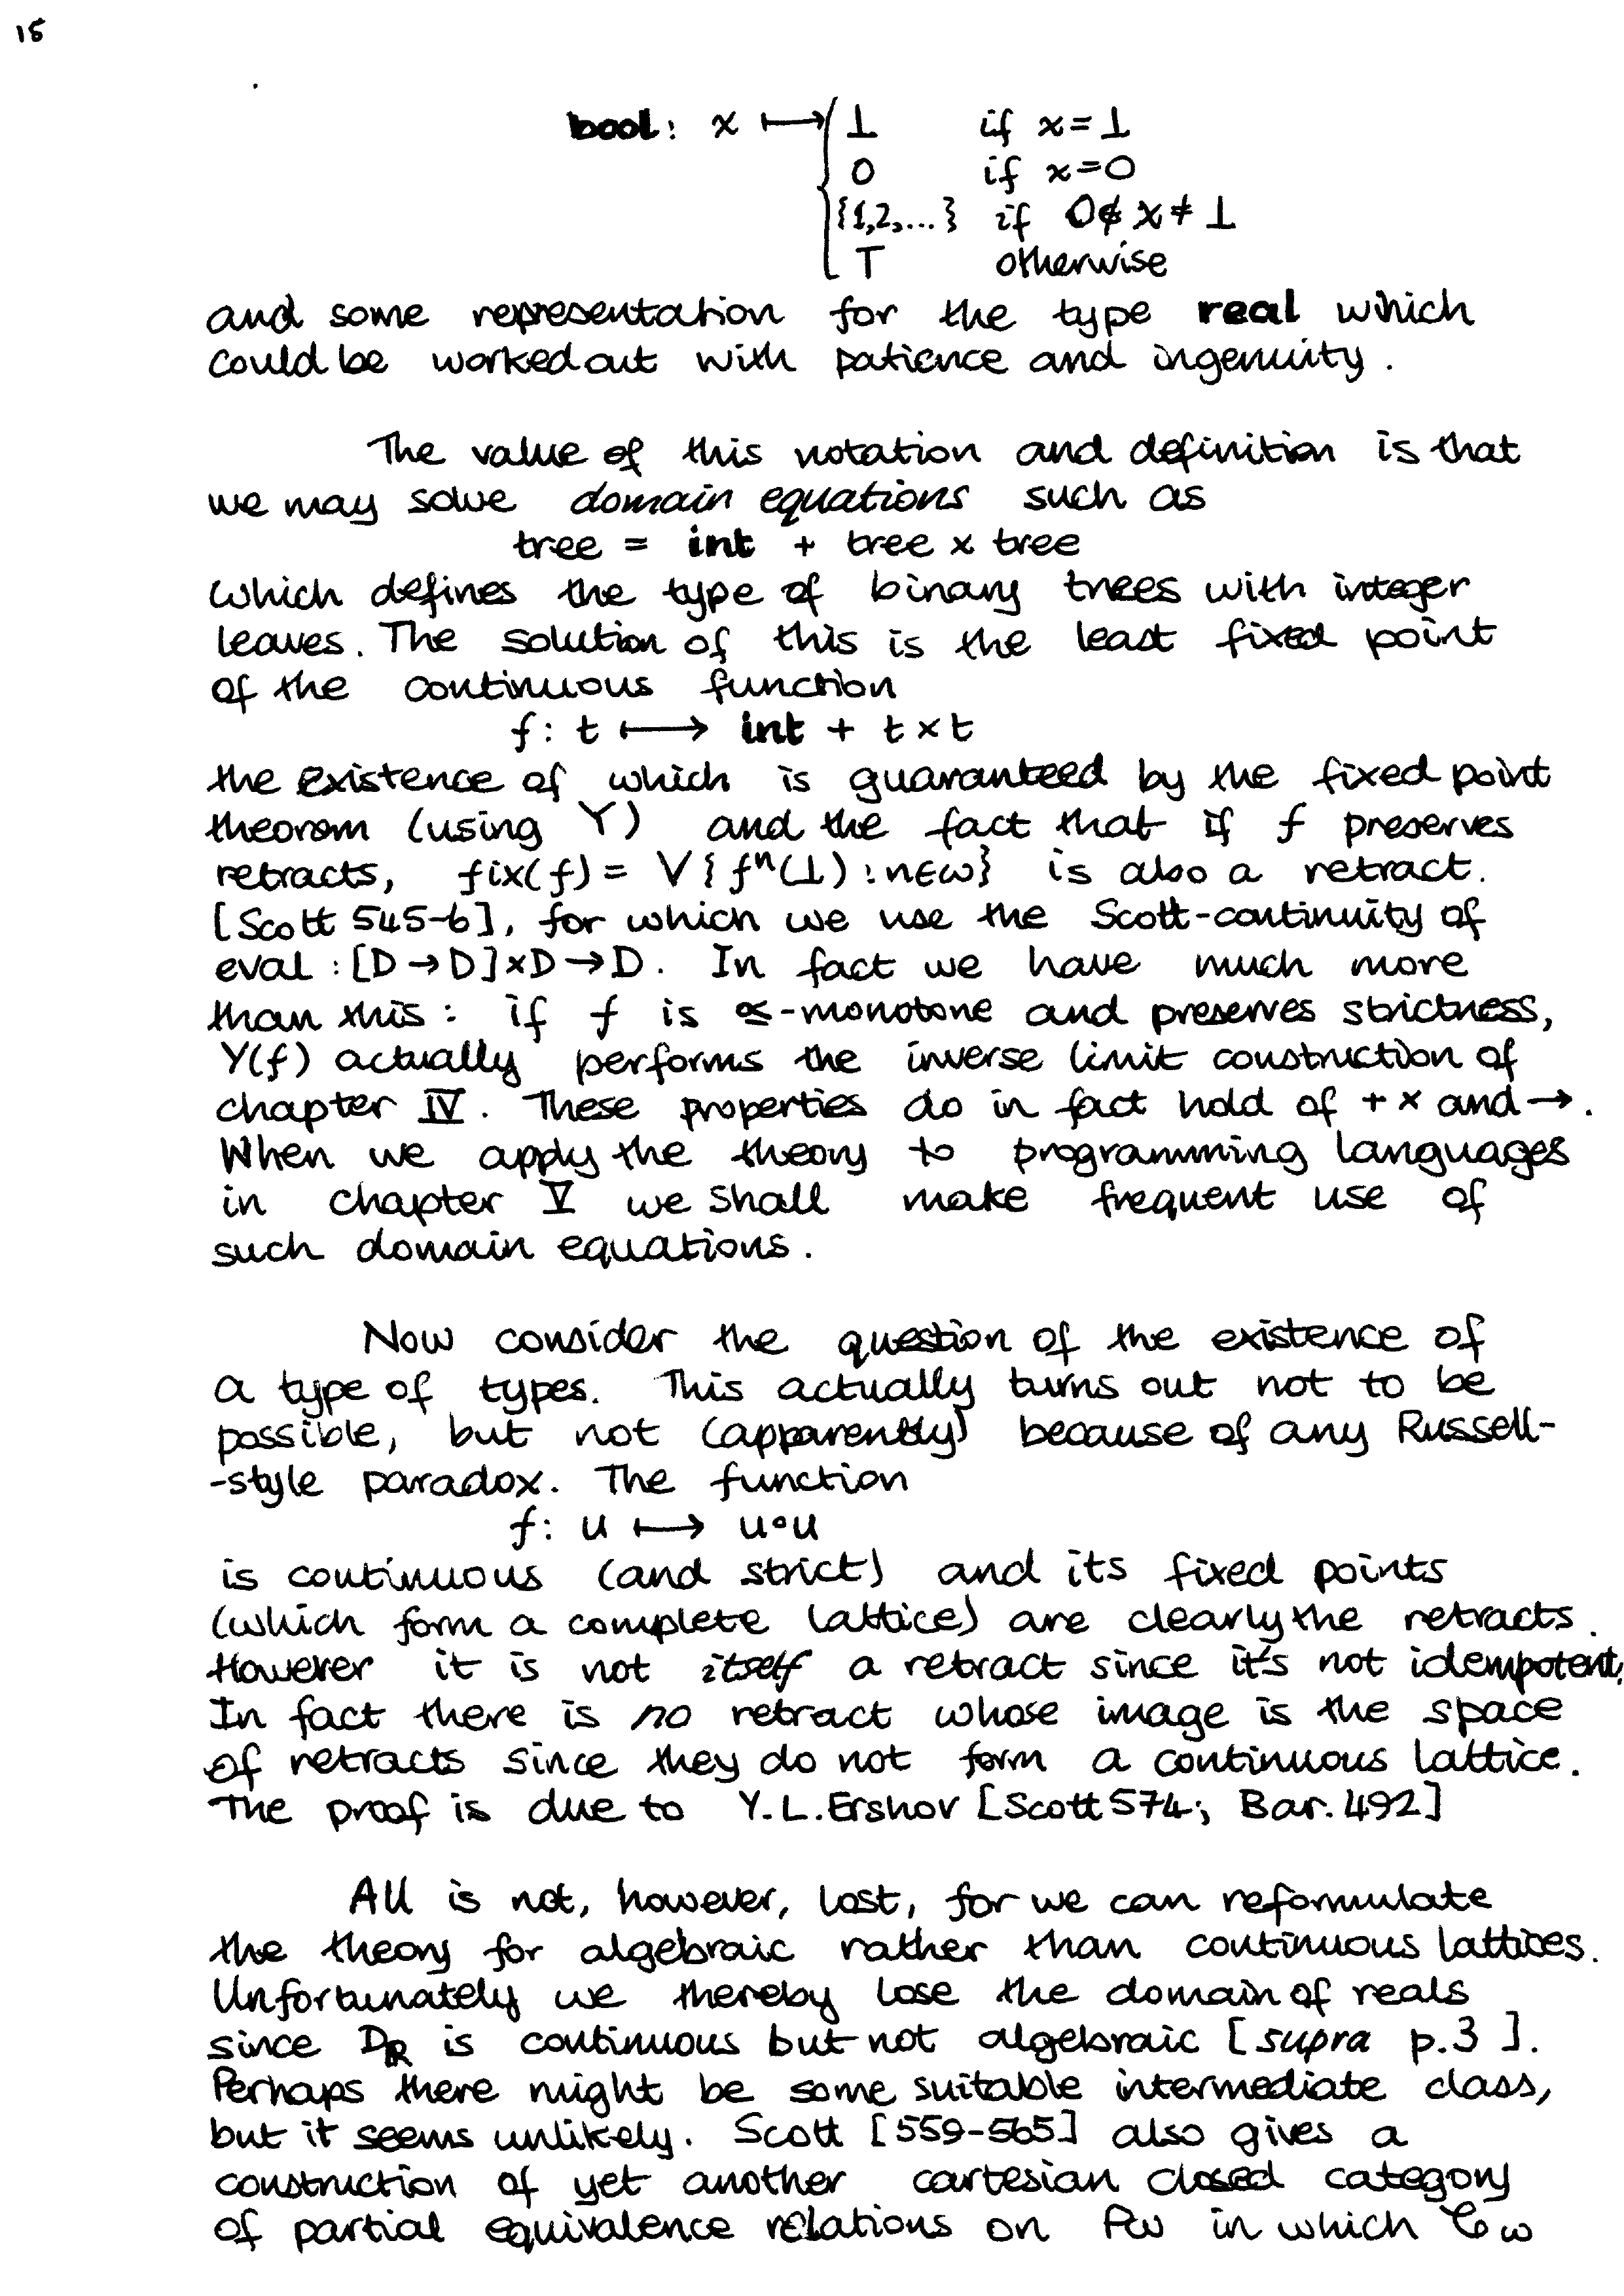 15
bool: x ⟼ { ⊥ if x=⊥
0 if x=0
{1,2,...} if 0∉x≠⊥
T otherwise
and some representation for the type real which
could be worked out with patience and ingenuity.
The value of this notation and definition is that
we may solve domain equations such as
tree = int + tree × tree
which defines the type of binary trees with integer
leaves. The solution of this is the least fixed point
of the continuous function
f: t ⟼ int + t×t
the existence of which is guaranteed by the fixed point
theorem (using Y) and the fact that if f preserves
retracts, fix(f) = V{fⁿ(⊥):n∈ω} is also a retract.
[Scott 545-6], for which we use the Scott-continuity of
eval:[D→D]×D→D. In fact we have much more
than this: if f is -monotone and preserves strictness,
Y(f) actually performs the inverse limit construction of
chapter IV. These properties do in fact hold of + × and →.
When we apply the theory to programming languages
in chapter V we shall make frequent use of
such domain equations.
Now consider the question of the existence of
a type of types. This actually turns out not to be
possible, but not (apparently) because of any Russell-
-style paradox. The function
f: u ⟼ u∘u
is continuous (and strict) and its fixed points
(which form a complete lattice) are clearly the retracts.
However it is not itself a retract since it's not idempotent.
In fact there is no retract whose image is the space
of retracts since they do not form a continuous lattice.
The proof is due to Y.L.Ershov [Scott 574; Bar. 492]
All is not, however, lost, for we can reformulate
the theory for algebraic rather than continuous lattices.
Unfortunately we thereby lose the domain of reals
since Dℝ is continuous but not algebraic [supra p.3].
Perhaps there might be some suitable intermediate class,
but it seems unlikely. Scott [559-565] also gives a
construction of yet another cartesian closed category
of partial equivalence relations on Pω in which 𝒞ω